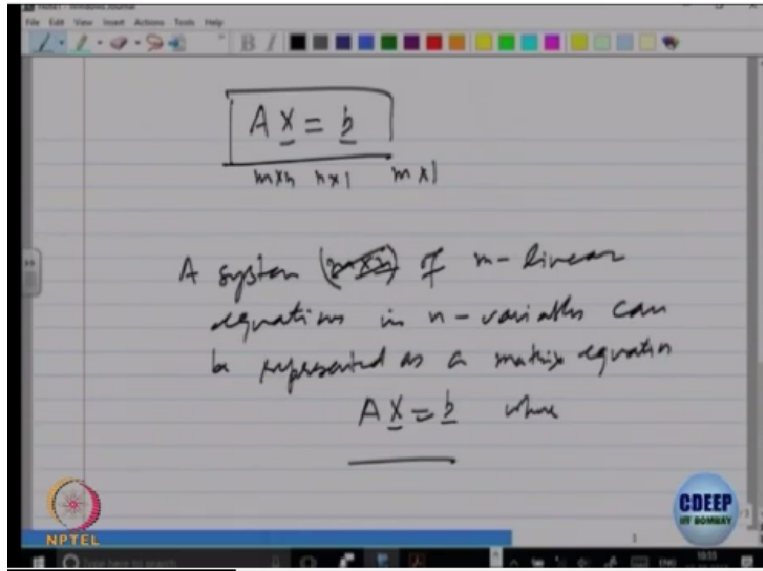 File Edit View Insert Actions Tools Help
B I
A x = b
m×n n×1 m×1
A system (m×n) of m-linear
equations in n-variables can
be represented as a matrix equation
A x = b where
NPTEL
CDEEP
IIT BOMBAY
Type here to search
ENG